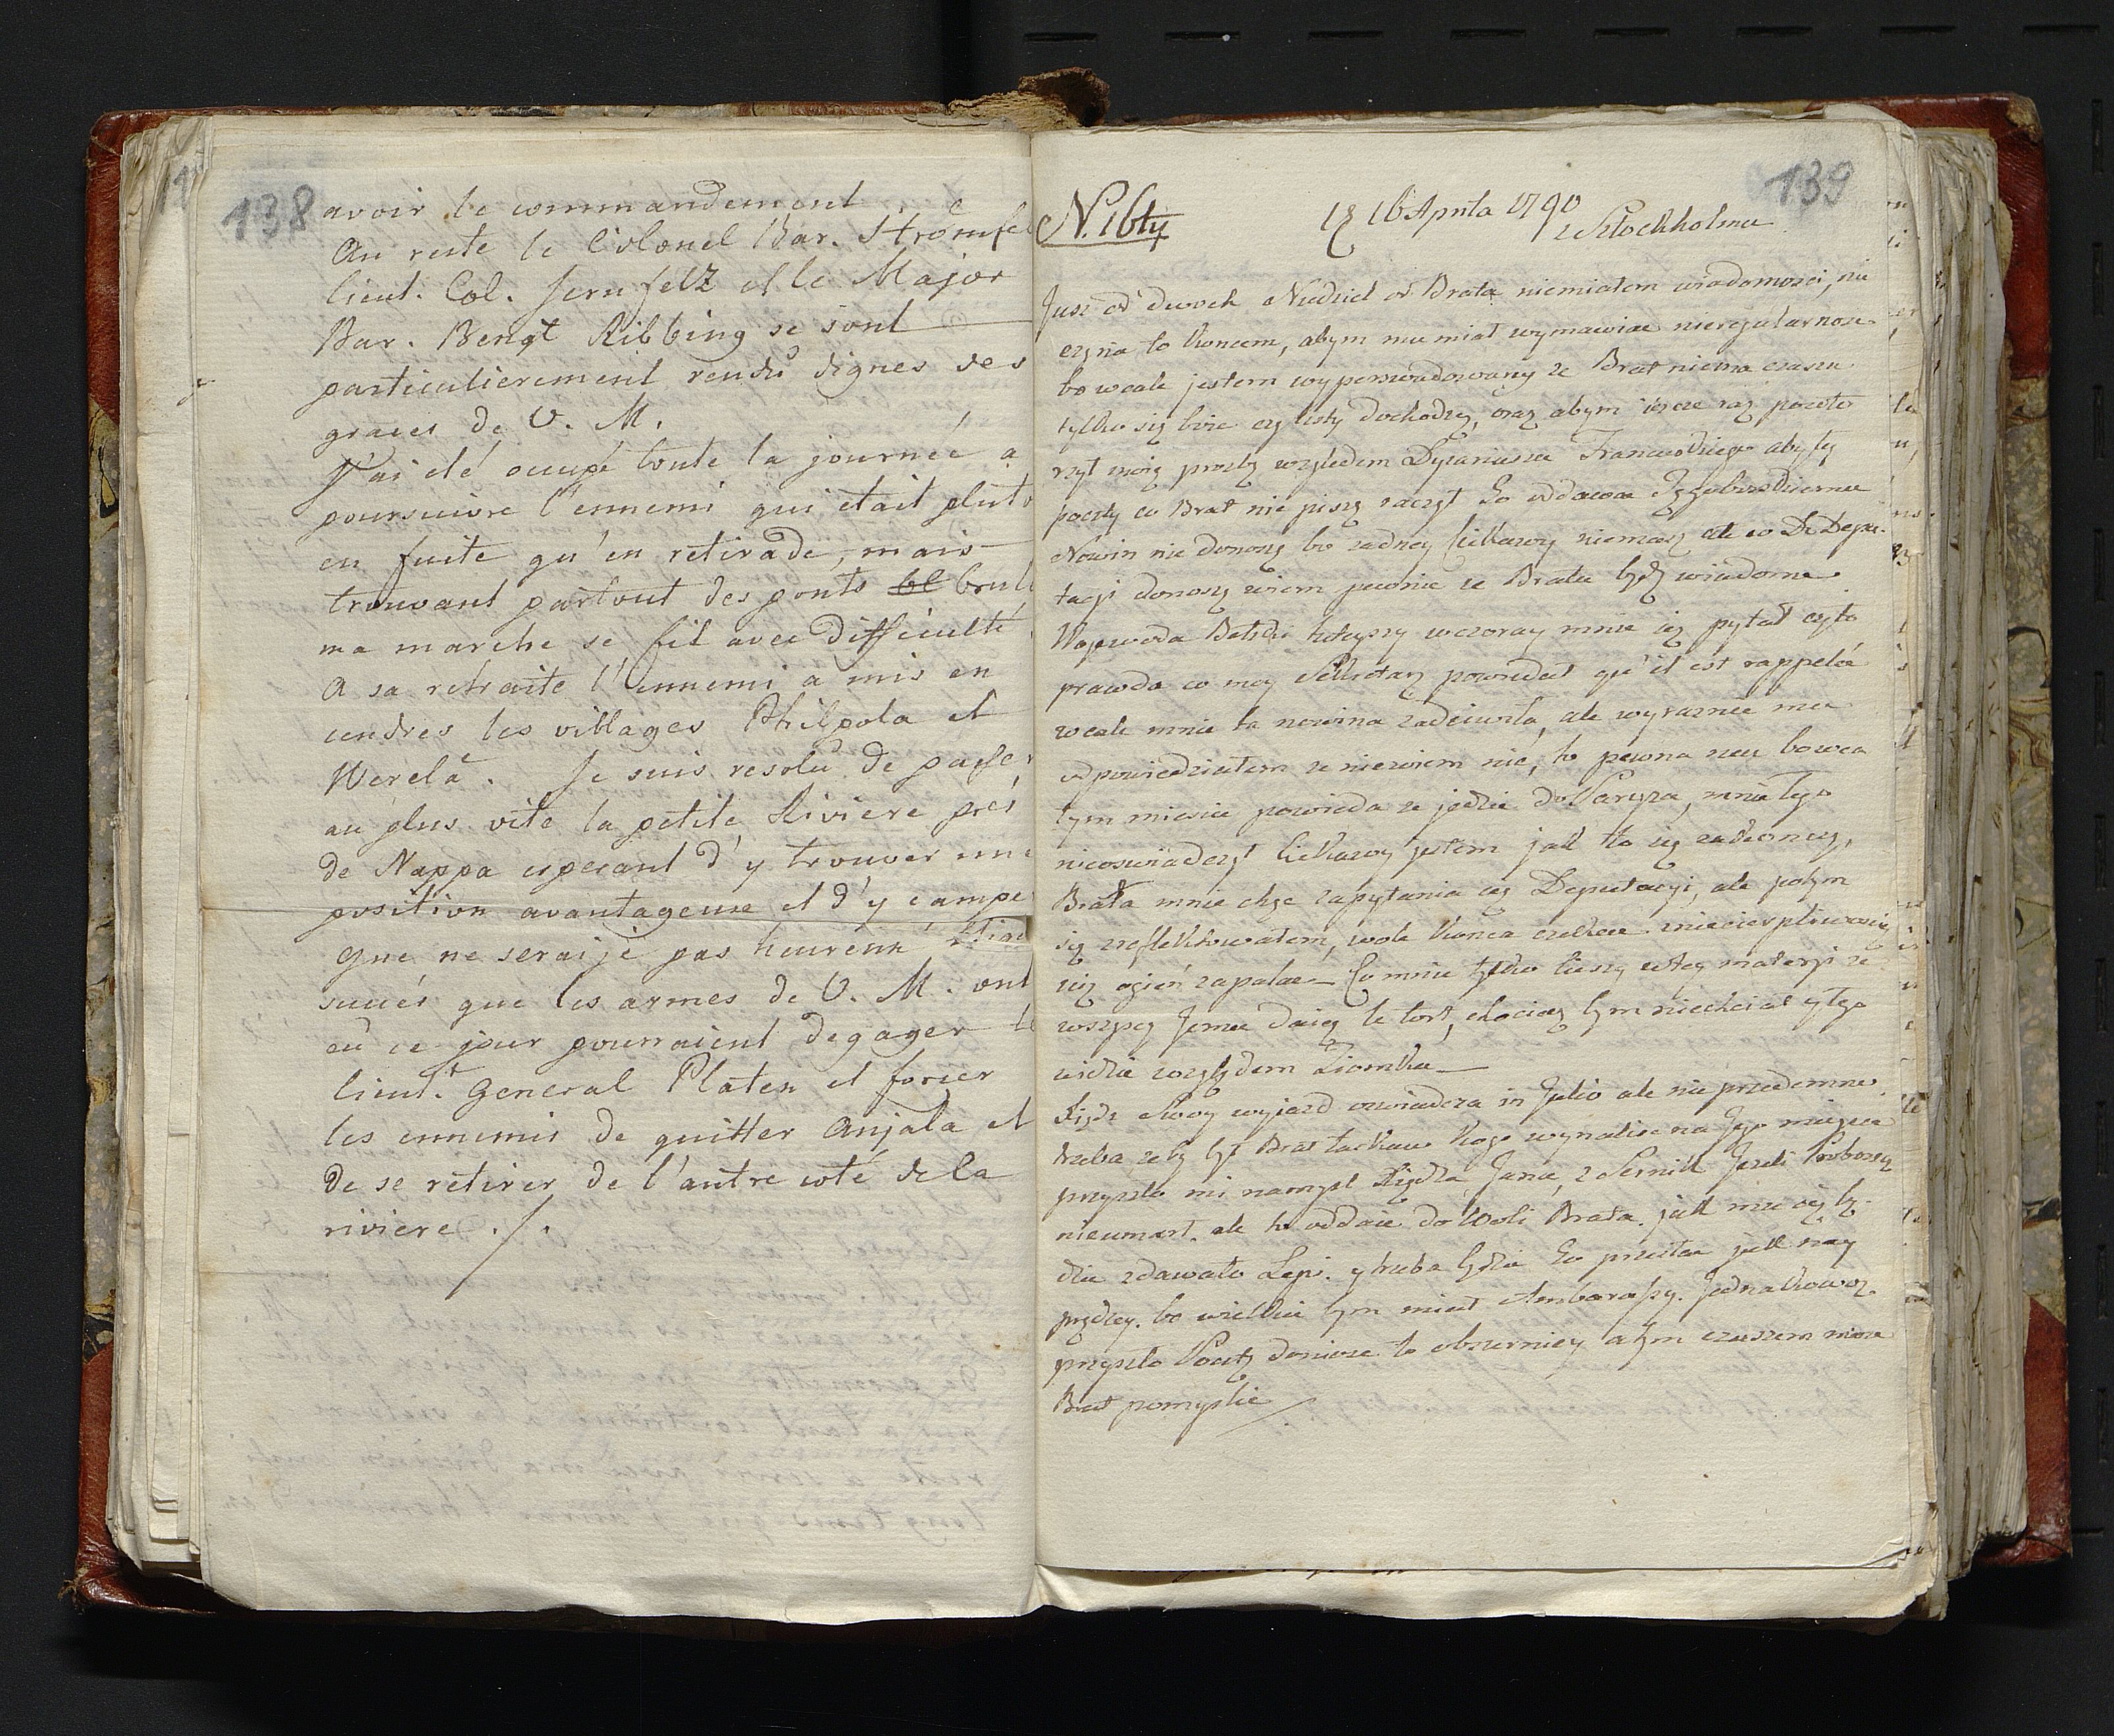 138
avoir le commandement
Au reste le Colonel Bar. Strömfel
lieut. Col. Jernfelz et le Major
Bar. Bengt Ribbing se sont
particulierement rendû dignes des
graces de V. M.
J'ai été occupé toute la journée a
poursuivre l'ennemi qui était plutô
en fuite qu'en retirade, mais
trouvant partout des ponts bl brul
ma marche se fit avec difficulté,
A sa retraite l'ennemi a mis en
cendres les villages Philpola et
Werelä. Je suis resolû de passer
au plus vite la petite Riviere près
de Nappa esperant d'y trouver une
position avantageuse et d'y campe
Que ne seraije pas heureux si
succés que les armes de V. M. ont
eu ce jour pourraient degager le
lieut. General Platen et forcer
les ennemis de quitter Anjala et
de se retirer de l'autre coté de la
riviere ./.
139
N. 16ty
16 Aprila 1790
z Sztockholmu
Jusz od dwoch Niedziel od Brata niemiałem wiadomosci, nie
czynie to koncem, abym mu miał wymawiac nieregularnosc
bo wcale jestem wyperswadowany ze Brat niema czaszu
tylko się boie czy listy dochodzą, oraz abym iescze raz powto
rzył moię prozbę względem Dyariusza Francuskiego aby tę
poczty co Brat nie piszę raczył Go oddawac
Nowin nie donoszę bo zadney ciekawy niemasz ale co D Depu-
tacji donoszę wiem pewnie ze Bratu będź wiadome
Wojewoda Betski tutyszy wczoray mnie się pytał czyto
prawda co moy Sekretarz powiedał qu'il est rappelée
wcale mnie ta nowina zadziwiła, ale wyraznie mu
odpowiedziałem ze niewiem nic, to pewna rzecz bowca
tym miescie powieda ze jedzie do Paryza, mnie tego
nieoswiadczył Ciekawy jestem jak to się zakonczy,
Brata mnie chęc zapytania cey Deputacyi, ale potym
się zreflektowałem, wole konca czekac zniecierpliwoscią
niz ogień zapalac – Co mnie tylko cieszy wtey materyi ze
wszyscy Jemu daią le tort, chociaz bym niechciał y tego
widzie względem Ziomka –
Xiądz Swoy wyjazd oswiadcza in Julio ale nie przedemne
trzeba zeby był Brat łaskaw kogo wynalesc na Jego mieysce
przyszło mi namysl Xiędza Jana, z Sernik Jezeli Proboszcz
nieumarł. ale to oddaie do Woli Brata. jak mu się bę-
dzie zdawało Lepi. y trzeba będzie Go przesłac jak nay
prędzey. bo wielkie bym miał Ambarasy. Jednakowoz
przyszło Pocztę doniose to obszerniey atym czaszem moze
Brat pomyslic